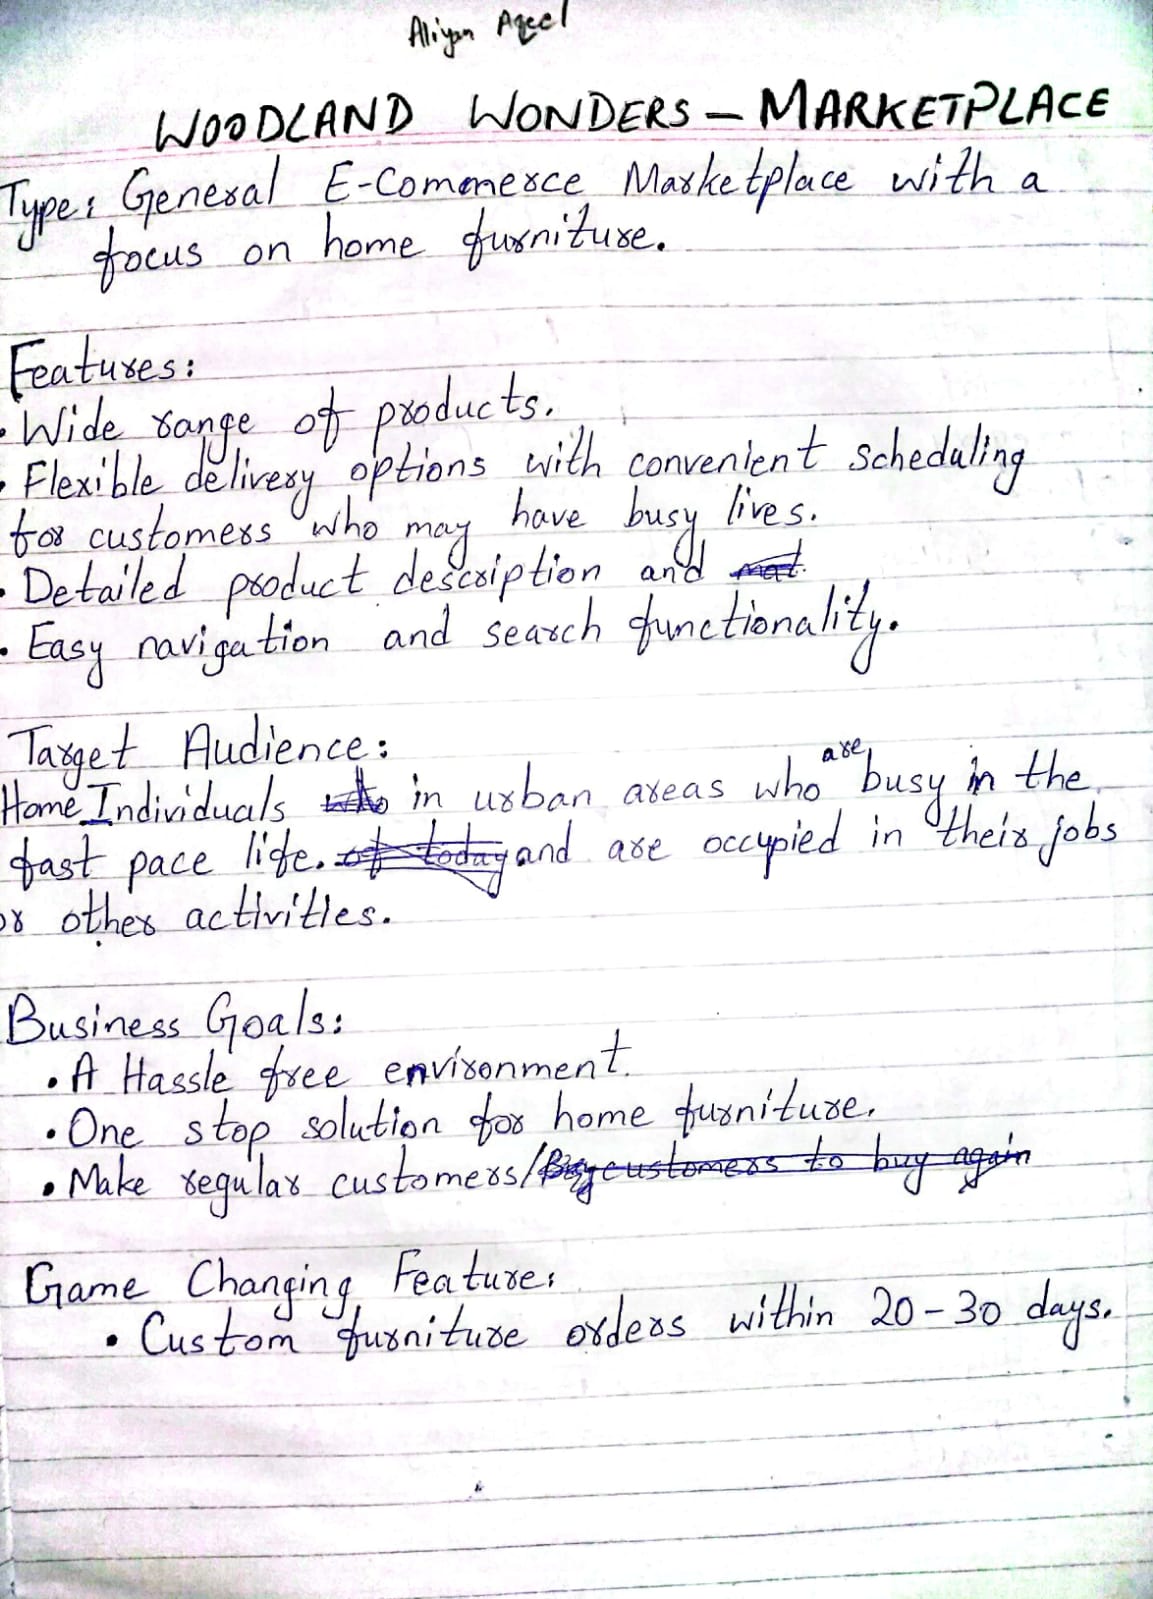 Aliyan Aqeel
WOODLAND WONDERS – MARKETPLACE
Type: General E-Commerce Marketplace with a
focus on home furniture.
Features:
• Wide range of products.
• Flexible delivery options with convenient scheduling
for customers who may have busy lives.
• Detailed product description and mat.
• Easy navigation and search functionality.
Target Audience:
are
Home Individuals who in urban areas who busy in the
fast pace life. of today and are occupied in their jobs
or other activities.
Business Goals:
• A Hassle free environment.
• One stop solution for home furniture.
• Make regular customers/ customers to buy again
Game Changing Feature:
• Custom furniture orders within 20-30 days.